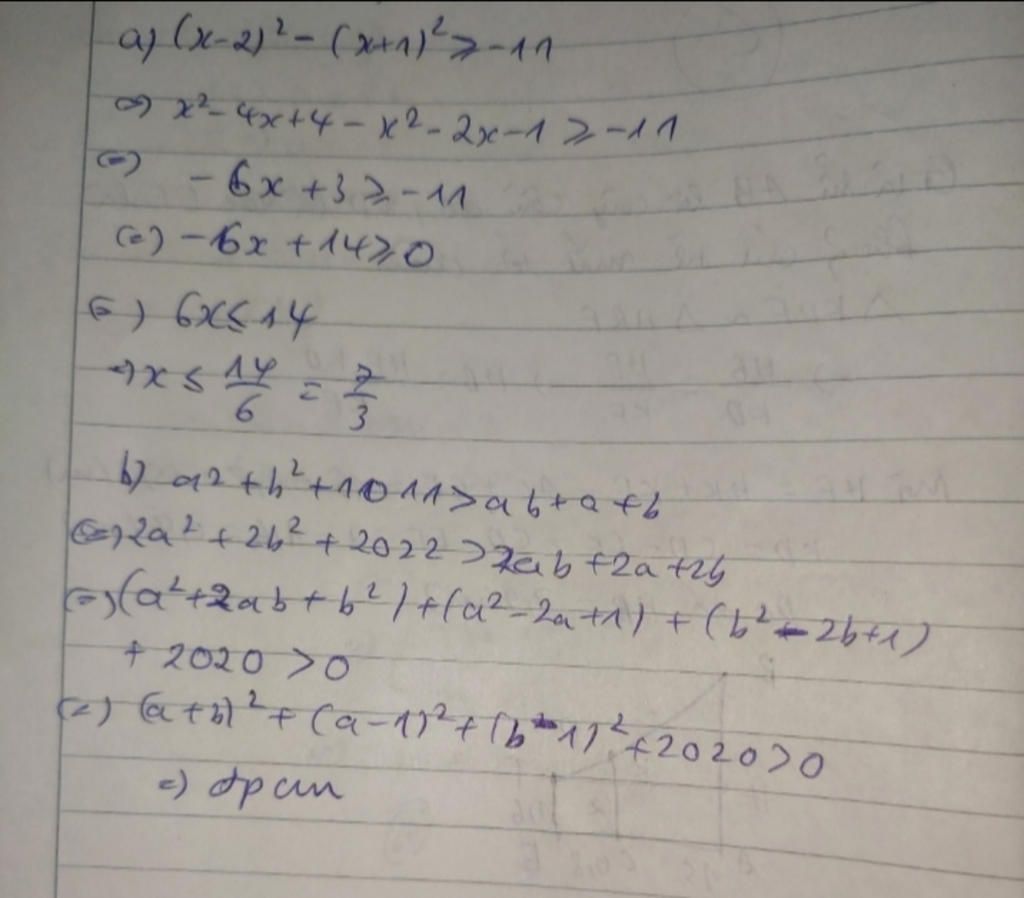 a) (x-2)² - (x+1)² ≥ -11
⇔) x² - 4x + 4 - x² - 2x - 1 ≥ -11
(=) -6x + 3 ≥ -11
(=) -6x + 14 ≥ 0
(=) 6x ≤ 14
⇒ x ≤ 14/6 = 7/3
b) a² + b² + 1011 > ab + a + b
(=) 2a² + 2b² + 2022 > 2ab + 2a + 2b
(=) (a² + 2ab + b²) + (a² - 2a + 1) + (b² - 2b + 1)
+ 2020 > 0
(=) (a + b)² + (a - 1)² + (b - 1)² + 2020 > 0
=) đpcm